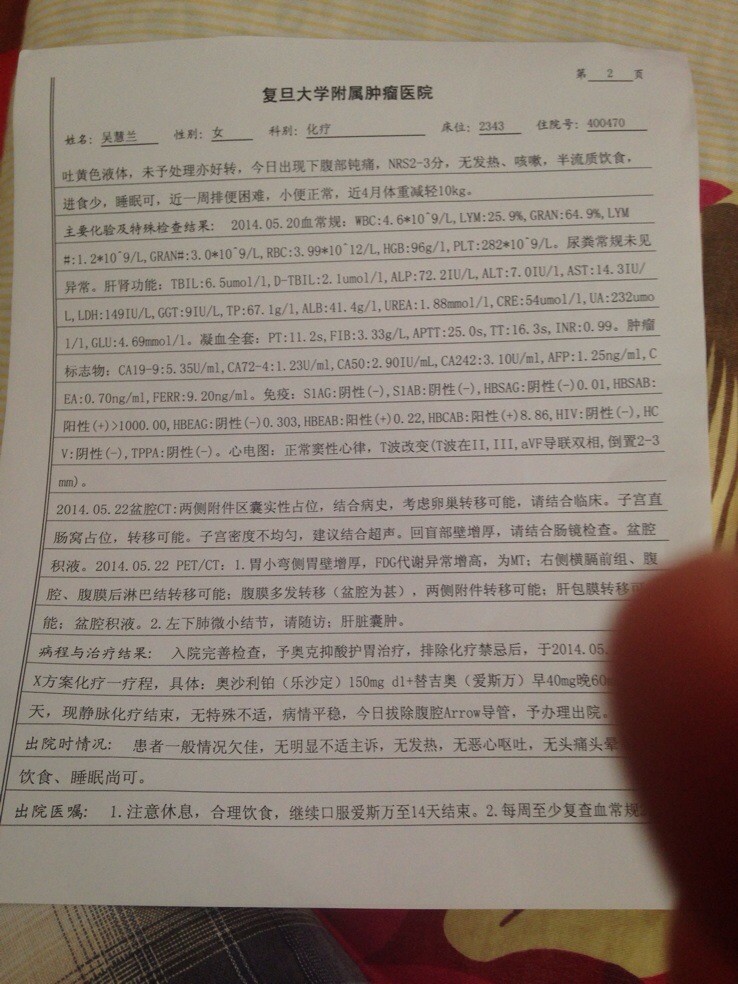 第 2 页
复旦大学附属肿瘤医院
姓名: 吴慧兰 性别: 女 科别: 化疗 床位: 2343 住院号: 400470
吐黄色液体，未予处理亦好转，今日出现下腹部钝痛，NRS2-3分，无发热、咳嗽，半流质饮食，
进食少，睡眠可，近一周排便困难，小便正常，近4月体重减轻10kg。
主要化验及特殊检查结果: 2014.05.20血常规: WBC:4.6*10^9/L,LYM:25.9%,GRAN:64.9%,LYM
#:1.2*10^9/L,GRAN#:3.0*10^9/L,RBC:3.99*10^12/L,HGB:96g/l,PLT:282*10^9/L。尿粪常规未见
异常。肝肾功能: TBIL:6.5umol/l,D-TBIL:2.1umol/l,ALP:72.2IU/L,ALT:7.0IU/l,AST:14.3IU/
L,LDH:149IU/L,GGT:9IU/L,TP:67.1g/l,ALB:41.4g/l,UREA:1.88mmol/l,CRE:54umol/l,UA:232umo
l/l,GLU:4.69mmol/l。凝血全套: PT:11.2s,FIB:3.33g/L,APTT:25.0s,TT:16.3s,INR:0.99。肿瘤
标志物: CA19-9:5.35U/ml,CA72-4:1.23U/ml,CA50:2.90IU/mL,CA242:3.10U/ml,AFP:1.25ng/ml,C
EA:0.70ng/ml,FERR:9.20ng/ml。免疫: S1AG:阴性(-),S1AB:阴性(-),HBSAG:阴性(-)0.01,HBSAB:
阳性(+)>1000.00,HBEAG:阴性(-)0.303,HBEAB:阳性(+)0.22,HBCAB:阳性(+)8.86,HIV:阴性(-),HC
V:阴性(-),TPPA:阴性(-)。心电图: 正常窦性心律，T波改变(T波在II,III,aVF导联双相,倒置2-3
mm)。
2014.05.22盆腔CT:两侧附件区囊实性占位，结合病史，考虑卵巢转移可能，请结合临床。子宫直
肠窝占位，转移可能。子宫密度不均匀，建议结合超声。回盲部壁增厚，请结合肠镜检查。盆腔
积液。2014.05.22 PET/CT: 1.胃小弯侧胃壁增厚，FDG代谢异常增高，为MT; 右侧横膈前组、腹
腔、腹膜后淋巴结转移可能; 腹膜多发转移（盆腔为甚），两侧附件转移可能; 肝包膜转移可
能; 盆腔积液。2.左下肺微小结节，请随访; 肝脏囊肿。
病程与治疗结果: 入院完善检查，予奥克抑酸护胃治疗，排除化疗禁忌后，于2014.05.
X方案化疗一疗程，具体: 奥沙利铂（乐沙定）150mg d1+替吉奥（爱斯万）早40mg晚60m
天，现静脉化疗结束，无特殊不适，病情平稳，今日拔除腹腔Arrow导管，予办理出院。
出院时情况: 患者一般情况欠佳，无明显不适主诉，无发热，无恶心呕吐，无头痛头晕
饮食、睡眠尚可。
出院医嘱: 1.注意休息，合理饮食，继续口服爱斯万至14天结束。2.每周至少复查血常规